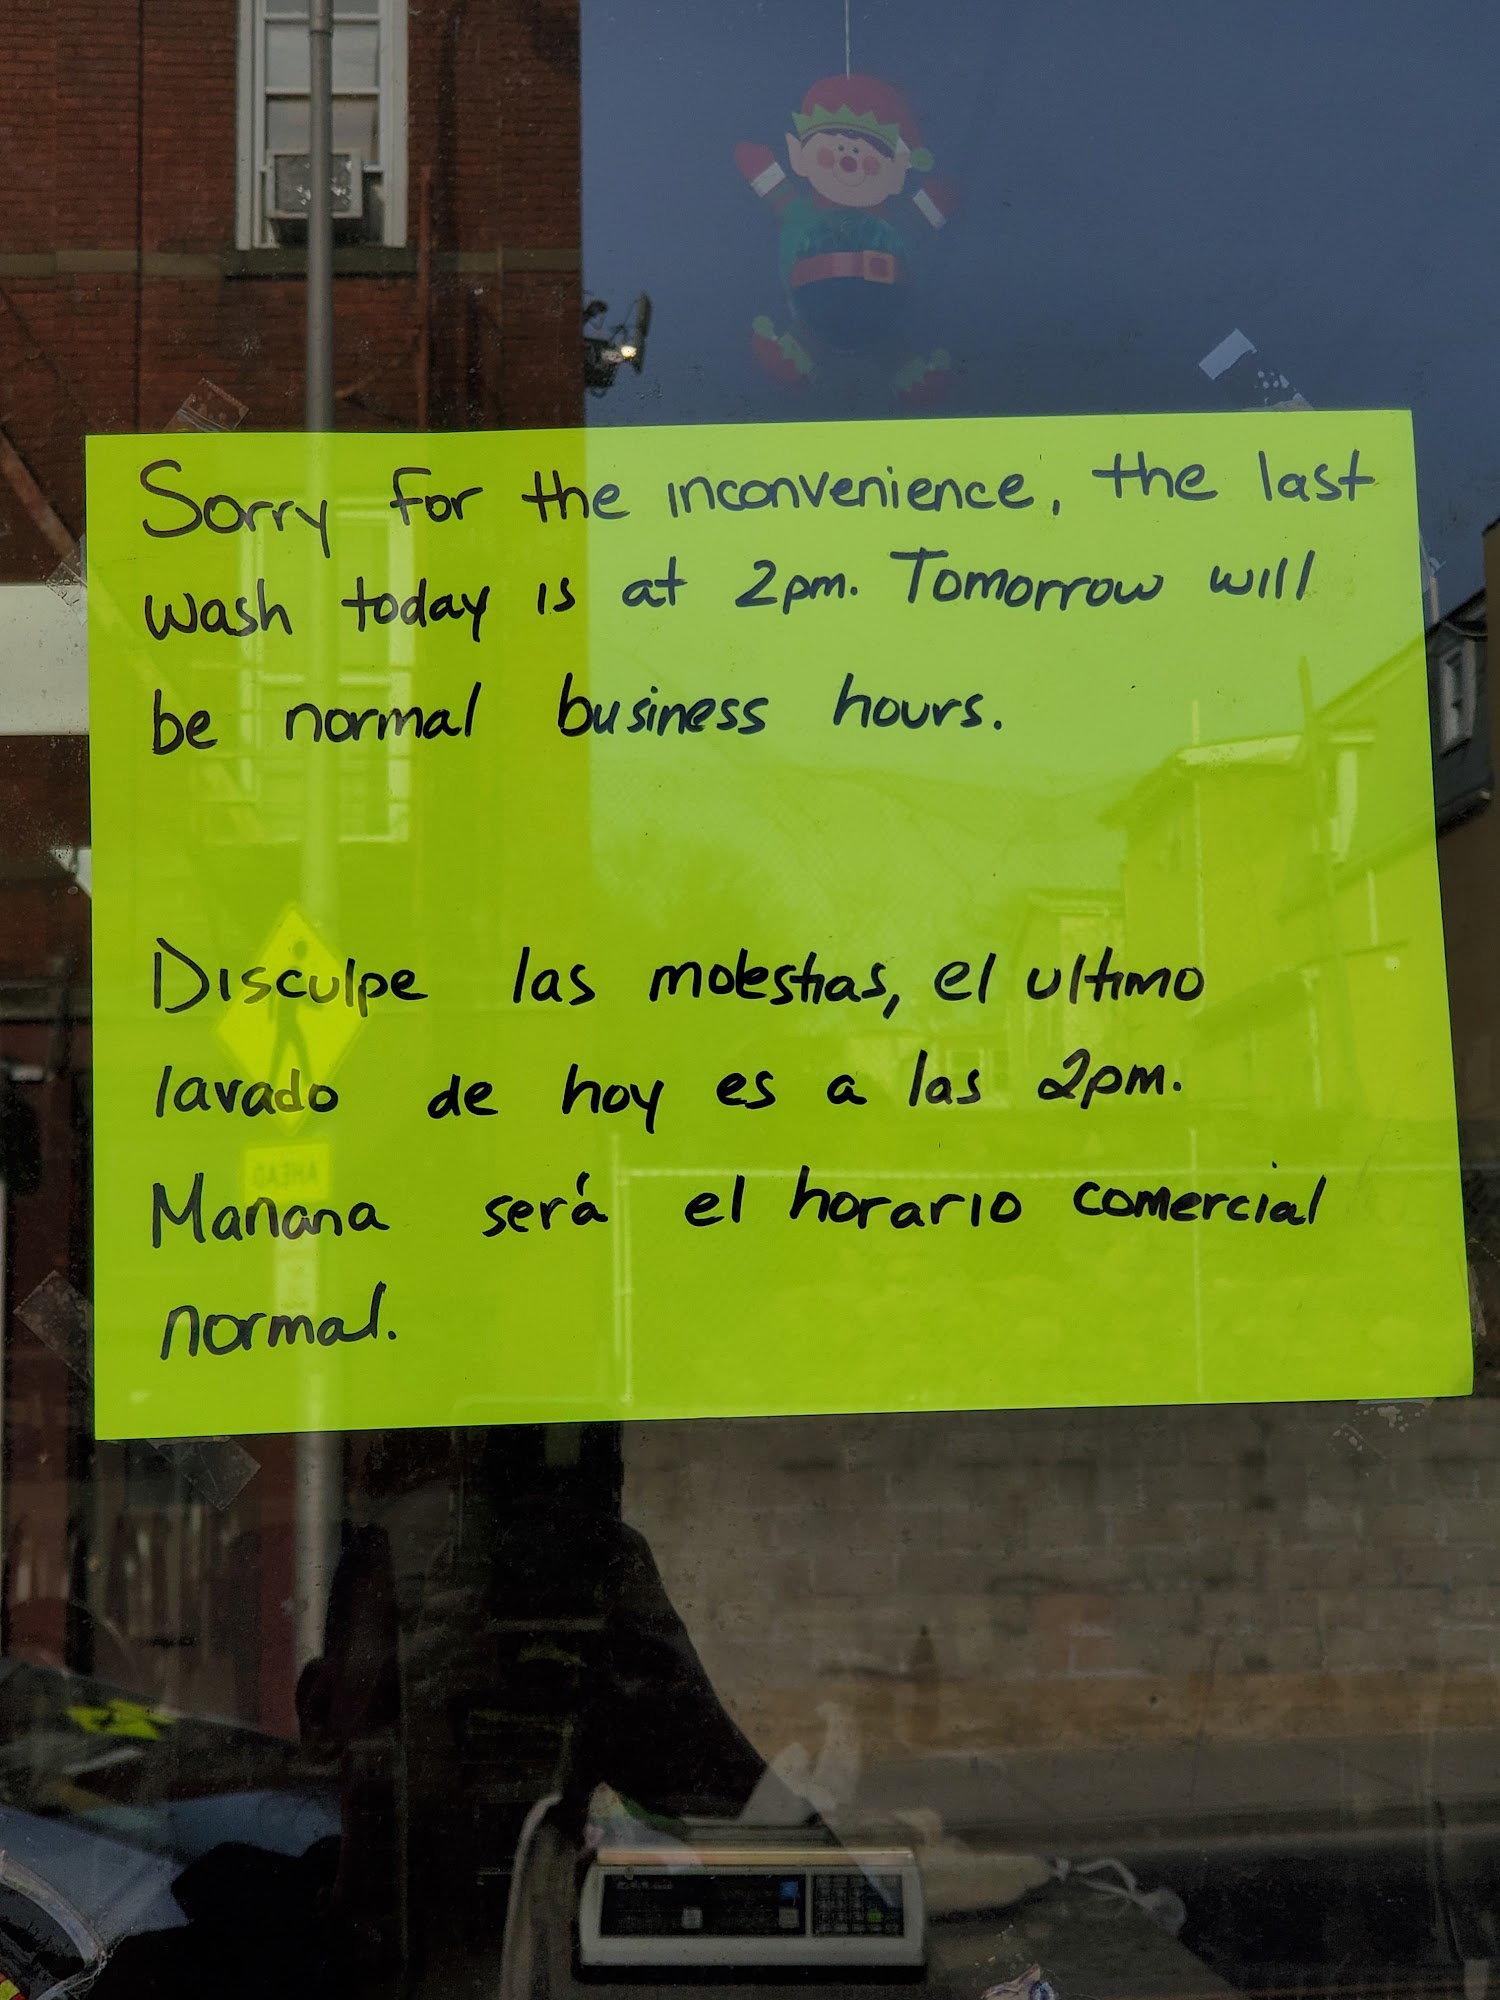 Sorry for the inconvenience, the last
wash today is at 2pm. Tomorrow will
be normal business hours.
Disculpe las molestias, el ultimo
lavado de hoy es a las 2pm.
Manana será el horario comercial
normal.
AHEAD